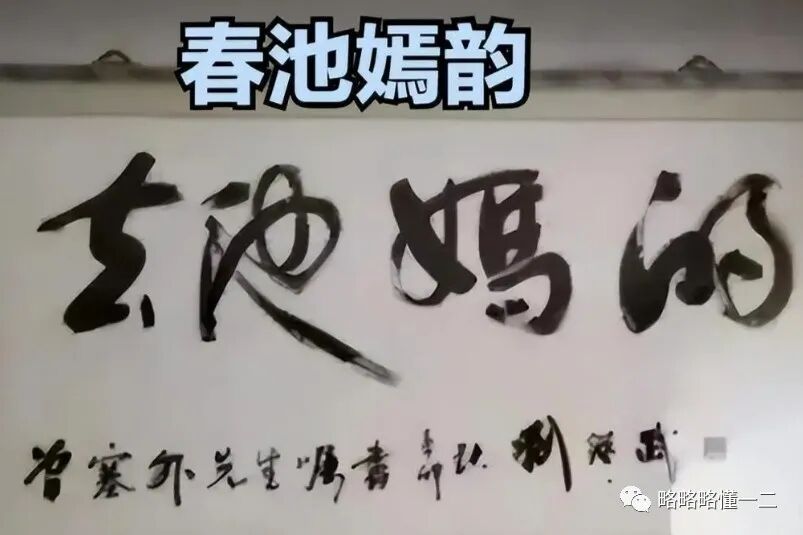 春池嫣韵
春池嫣韵
塞外先生嘱书 辛卯秋 刘
略略略懂一二